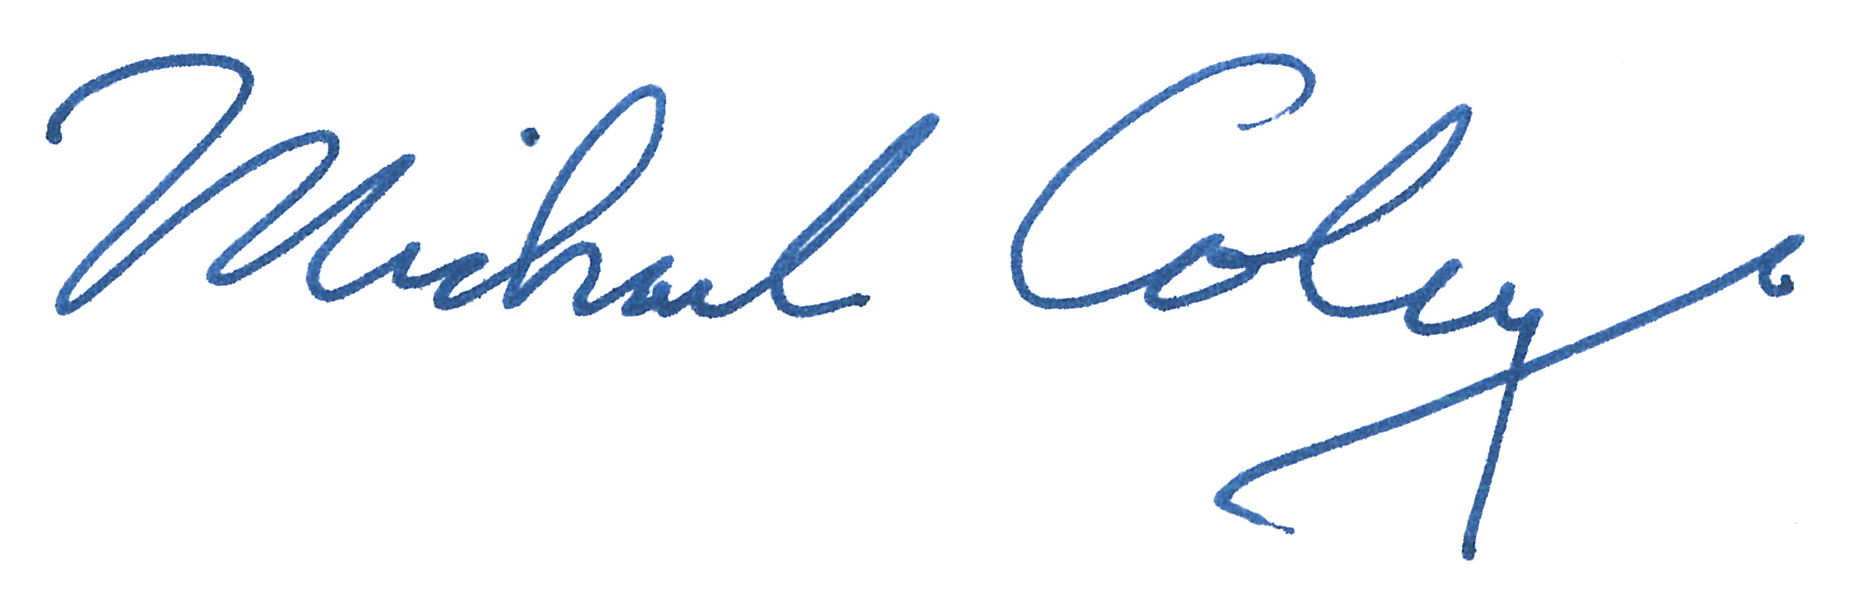 Michael Coley